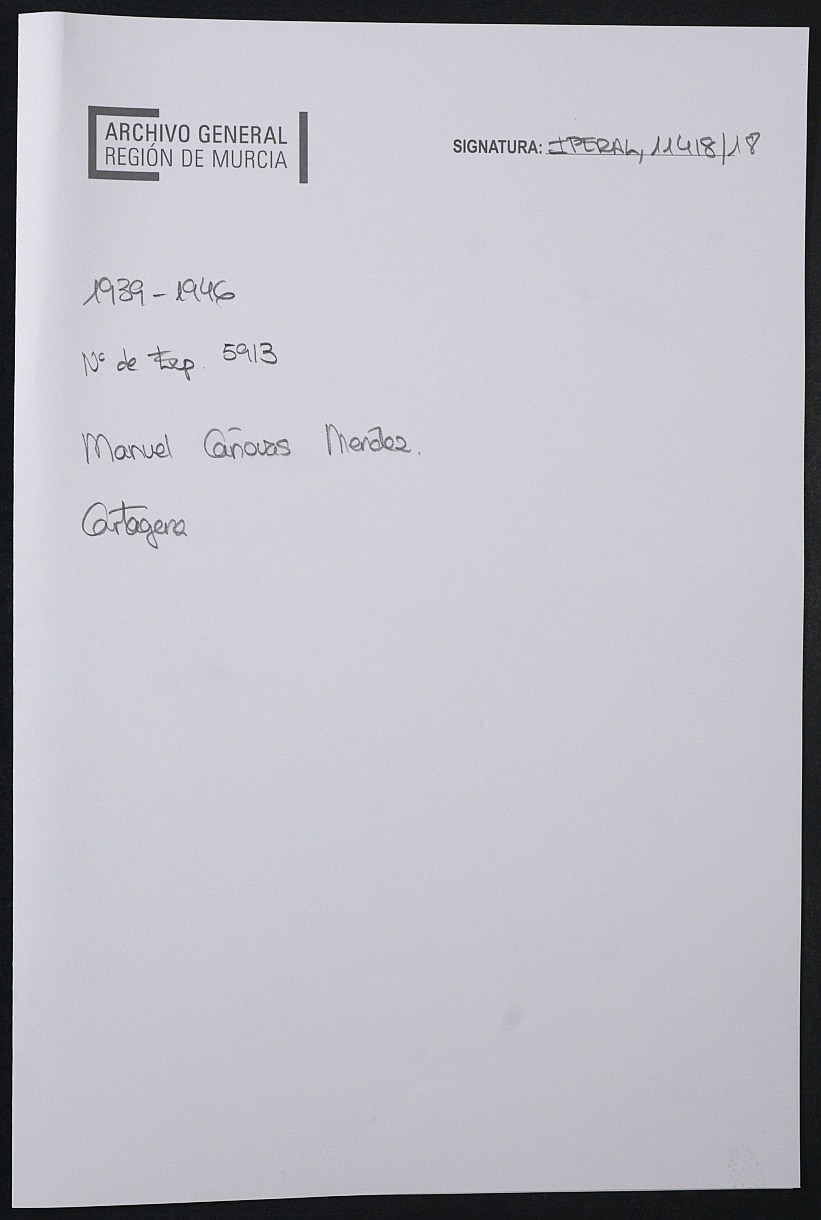 ARCHIVO GENERAL
REGIÓN DE MURCIA
SIGNATURA: IPERAL, 11418/18
1939-1946
Nº de Exp. 5913
Manuel Cáñovas Mendez.
Cartagena